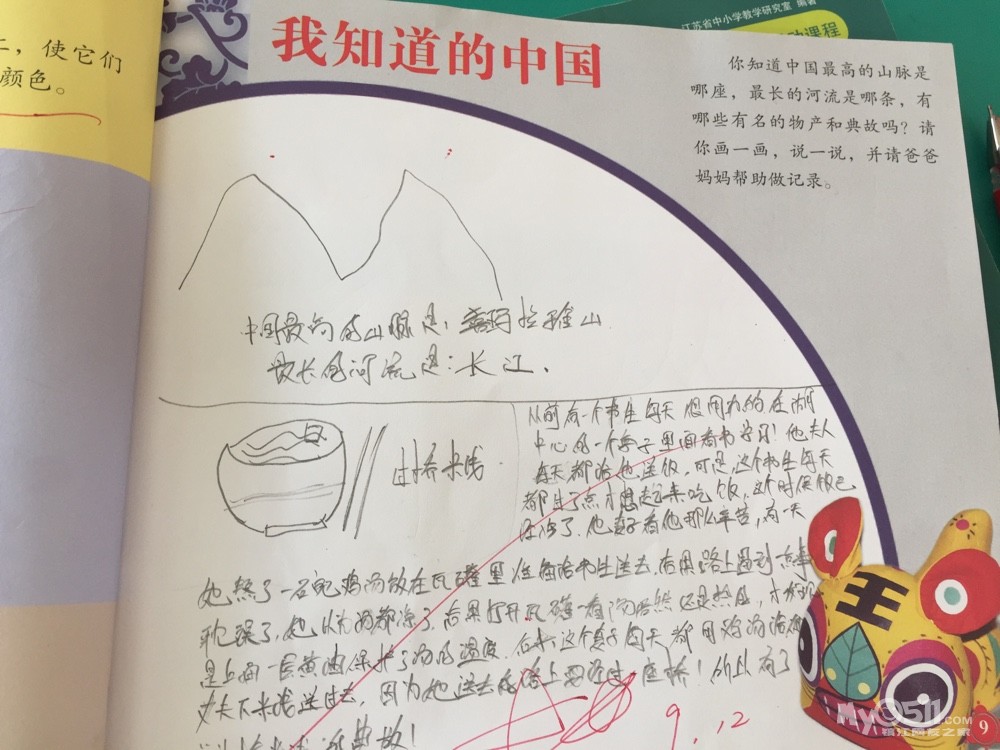 江苏省中小学教学研究室 编著
动课程
,使它们
颜色。
我知道的中国
你知道中国最高的山脉是
哪座，最长的河流是哪条，有
哪些有名的物产和典故吗？请
你画一画，说一说，并请爸爸
妈妈帮助做记录。
中国最高的山脉是：喜玛拉雅山
最长的河流是：长江.
过桥米线
从前有一个书生每天很用功的在湖
中心的一个亭子里面看书学习！他夫人
每天都给他送饭，可是，这个书生每天
都过了点才想起来吃饭，这个时候饭已
经冷了.他妻子看他那么辛苦，有一天
她熬了一鸡汤放在瓦罐里准备给书生送去，结果路上遇到点事
耽误了，她以为汤都凉了，结果打开瓦罐一看汤居然还是热的，才
是上面一层黄油保护了汤的温度.后来这个妻子每天都用鸡汤给
丈夫下米线送过去，因为她送去的路上要经过一座桥！所以有了
典故！
9.12
王
My0511.COM
镇江网友之家
9